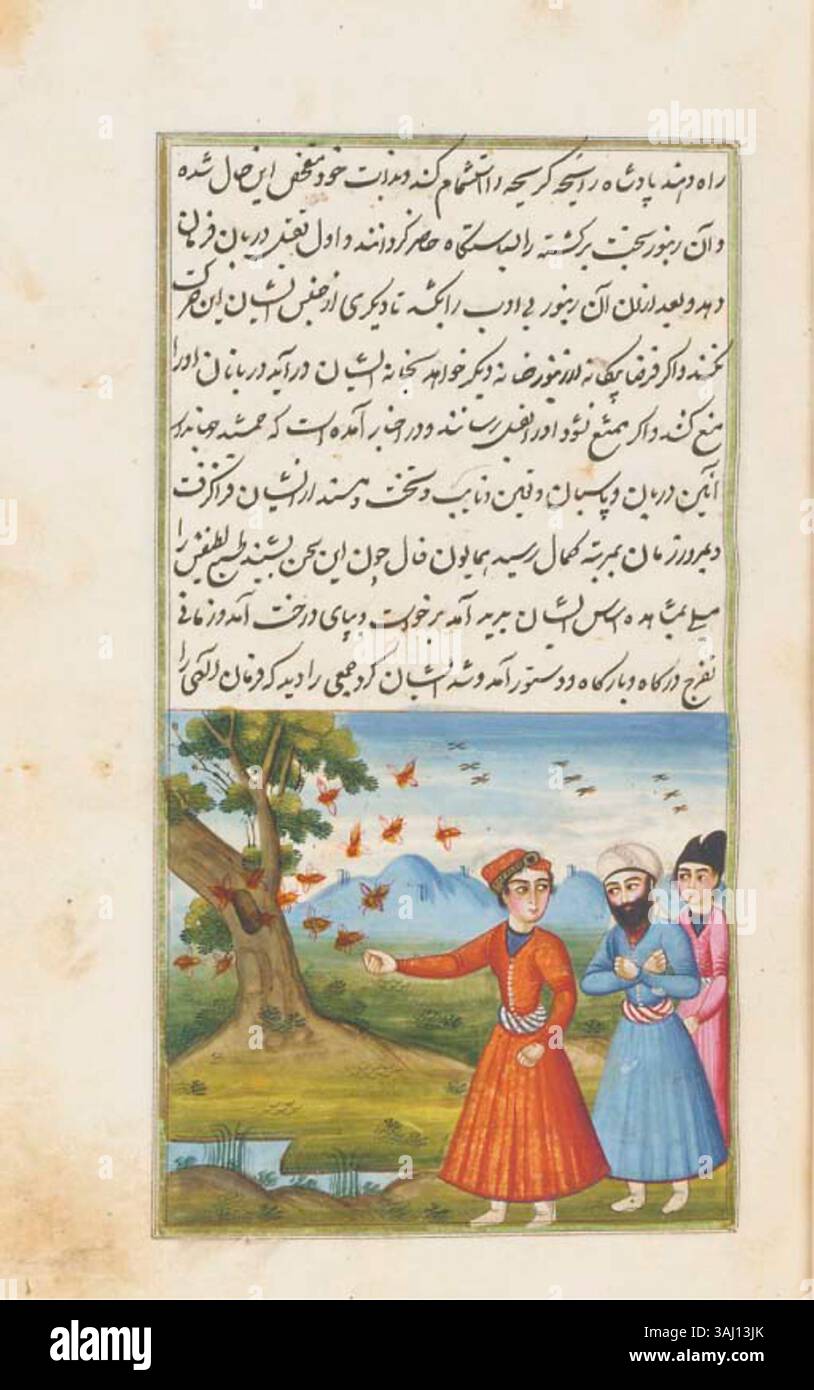 راه دهند پادشاه رایحه کریهه را استشمام کند و بذات خود متفحص این حال شده
و آن زنبور بخت برکشته را بسیاستگاه حاضر کردانند و اول بقتل دربان فرمان
دهد و بعد ازان آن زنبور بی ادب را بکشد تا دیکری از جنس ایشان این حرکت
نکنند و اکر فرضا بیکانه از زنبورخانه دیکر خواهد بخانه ایشان در آید دربانان او را
منع کنند و اکر ممتنع نشود او را بقتل رسانند و در اخبار آمده است که جمشید جهاندار
آئین دربان و پاسبان و تعین نایب و تخت و مسند از ایشان فرا کرفت
و بمرور زمان بمرتبه کمال رسید همایون فال چون این سخن بشنید طبع لطیفش را
میلی بمشاهده اساس ایشان پدید آمد برخواست و بپای درخت آمد و زمانی
تفرج درکاه و بارکاه و دستور آمد و شد ایشان کرد جمعی را دید که فرمان الهی را
alamy
Image ID: 3AJ13JK
www.alamy.com